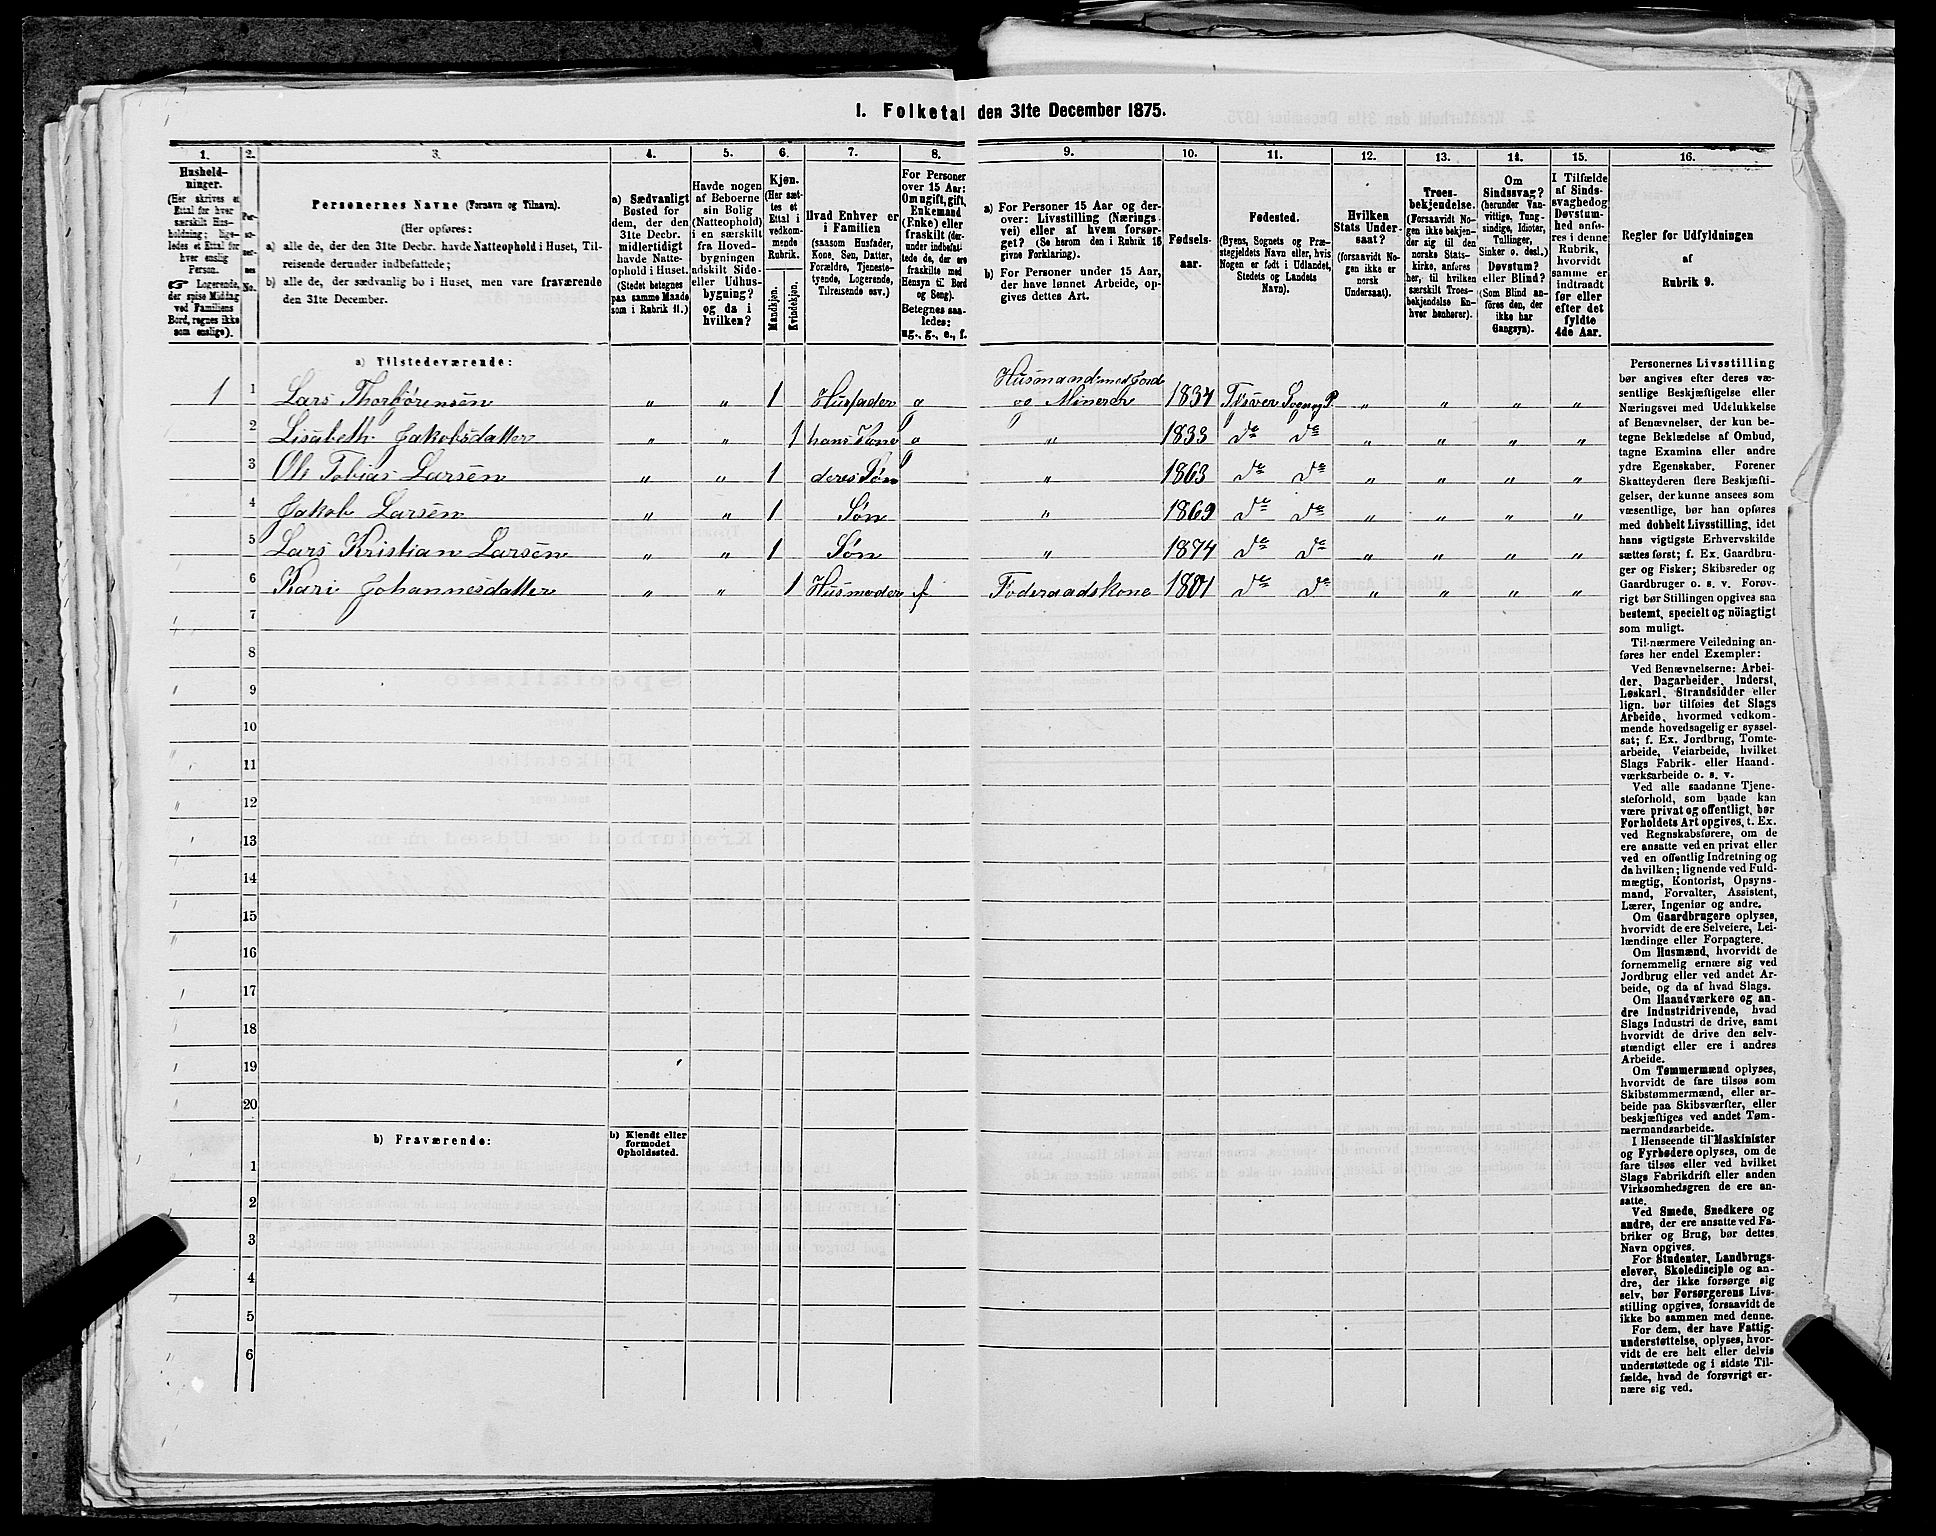 1. Folketal den 31te December 1875.
1. 2. 3. 4. 5. 6. 7. 8. 9. 10. 11. 12. 13. 14. 15. 16.
Hushold-
ninger.
(Her skrives et
Ettal for hver
særskilt Hus-
holdning; lige-
ledes et Ettal for
hver enslig
Person.
☞ Logerende,
der spise Middag
ved Familiens
Bord, regnes ikke
som enslige).
Per-
so-
ner-
nes
No.
Personernes Navne (Fornavn og Tilnavn).
(Her opføres:
a) alle de, der den 31te Decbr. havde Natteophold i Huset, Til-
reisende derunder indbefattede;
b) alle de, der sædvanlig bo i Huset, men vare fraværende
den 31te December.
a) Sædvanligt
Bosted for
dem, der den
31te Decbr.
midlertidigt
havde Natte-
ophold i Huset.
(Stedet betegnes
paa samme Maade
som i Rubrik 11.)
Havde nogen
af Beboerne
sin Bolig
(Natteophold)
i en særskilt
fra Hoved-
bygningen
adskilt Side-
eller Udhus-
bygning?
og da i
hvilken?
Kjøn.
(Her sæt-
tes et
Ettal i
vedkom-
mende
Rubrik.
Mandkjøn.
Kvindekjøn.
Hvad Enhver er
i Familien
(saasom Husfader,
Kone, Søn, Datter,
Forældre, Tjeneste-
tyende, Logerende,
Tilreisende osv.)
For Personer
over 15 Aar:
Om ugift, gift,
Enkemand
(Enke) eller
fraskilt (der-
under indbefat-
tede de, der ere
fraskilte med
Hensyn til Bord
og Seng).
Betegnes saa-
ledes:
ug., g., e., f.
a) For Personer 15 Aar og der-
over: Livsstilling (Nærings-
vei) eller af hvem forsør-
get? (Se herom den i Rubrik 16
givne Forklaring).
b) For Personer under 15 Aar,
der have lønnet Arbeide, op-
gives dettes Art.
Fødsels-
aar.
Fødested.
(Byens, Sognets og Præ-
stegjeldets Navn eller, hvis
Nogen er født i Udlandet,
Stedets og Landets
Navn).
Hvilken
Stats Under-
saat?
(forsaavidt No-
gen ikke er
norsk
Undersaat).
Troes-
bekjendelse.
(Forsaavidt No-
gen ikke bekjen-
der sig til den
norske Stats-
kirke, anføres
her, til hvilken
særskilt Troes-
bekjendelse En-
hver henhører).
Om
Sindssvag?
(herunder Van-
vittige, Tung-
sindige, Idioter,
Tullinger,
Sinker o. desl.)
Døvstum?
eller Blind?
(Som Blind an-
føres den, der
ikke har
Gangsyn).
I Tilfælde
af Sinds-
svaghed og
Døvstum-
hed anfø-
res i denne
Rubrik.
hvorvidt
samme er
indtraadt
før eller
efter det
fyldte
4de Aar.
Regler for Udfyldningen
af
Rubrik 9.
a) Tilstedeværende:
1 1 Lars Thorbjørensen „ „ 1 Husfader g Husmand med Jord
og Minerer 1834 Tysver Sogn og P. „ „ „ „
2 Lisabeth Jakobsdatter „ „ 1 hans Kone g „ 1833 do do „ „ „ „
3 Ole Tobias Larsen „ „ 1 deres Søn „ 1863 do do „ „ „ „
4 Jakob Larsen „ „ 1 Søn „ 1869 do do „ „ „ „
5 Lars Kristian Larsen „ „ 1 Søn „ 1874 do do „ „ „ „
6 Kari Johannesdatter „ „ 1 Husmoder f Føderaadskone 1801 do do „ „ „ „
7
8
9
10
11
12
13
14
15
16
17
18
19
20
b) Fraværende:
b) Kjendt eller
formodet
Opholdssted.
1
2
3
4
5
6
Personernes Livsstilling
bør angives efter deres væ-
sentlige Beskjæftigelse eller
Næringsvei med Udelukkelse
af Benævnelser, der kun be-
tegne Beklædelse af Ombud,
tagne Examina eller andre
ydre Egenskaber. Forener
Skatteyderen flere Beskjæfti-
gelser, der kunne ansees som
væsentlige, bør han opføres
med dobbelt Livsstilling, idet
hans vigtigste Erhvervskilde
sættes først; f. Ex. Gaardbru-
ger og Fisker; Skibsreder og
Gaardbruger o. s. v. Forøv-
rigt bør Stillingen opgives saa
bestemt, specielt og nöiagtigt
som muligt.
Til nærmere Veiledning an-
føres her endel Exempler:
Ved Benævnelserne: Arbei-
der, Dagarbeider, Inderst,
Løskarl, Strandsidder eller
lign. bør tilføies det Slags
Arbeide, hvormed vedkom-
mende hovedsagelig er syssel-
sat; f. Ex. Jordbrug, Tomte-
arbeide, Veiarbeide, hvilket
Slags Fabrik- eller Haand-
værksarbeide o. s. v.
Ved alle saadanne Tjene-
steforhold, som baade kan
være privat og offentligt, bør
Forholdets Art opgives, t. Ex.
ved Regnskabsførere, om de
ere ansatte ved en privat eller
ved en offentlig Indretning og
da hvilken; lignende ved Fuld-
mægtig, Kontorist, Opsyns-
mand, Forvalter, Assistent,
Lærer, Ingeniør og andre.
Om Gaardbrugere oplyses,
hvorvidt de ere Selveiere, Lei-
lændinge eller Forpagtere.
Om Husmænd, hvorvidt de
fornemmelig ernære sig ved
Jordbrug eller ved andet Ar-
beide, og da af hvad Slags.
Om Haandværkere og an-
dre Industridrivende, hvad
Slags Industri de drive, samt
hvorvidt de drive den selv-
stændigt eller ere i andres
Arbeide.
Om Tømmermænd oplyses,
hvorvidt de fare tilsøs som
Skibstømmermænd, eller ar-
beide paa Skibsværfter, eller
beskjæftiges ved andet Tøm-
mermandsarbeide.
I Henseende til Maskinister
og Fyrbødere oplyses, om de
fare tilsøs eller ved hvilket
Slags Fabrikdrift eller anden
Virksomhedsgren de ere an-
satte.
Ved Smede, Snedkere og
andre, der ere ansatte ved Fa-
briker og Brug, bør dettes
Navn opgives.
For Studenter, Landbrugs-
elever, Skoledisciple og an-
dre, der ikke forsørge sig
selv, bør Forsørgerens Livs-
stilling opgives, forsaavidt de
ikke bo sammen med denne.
For dem, der have Fattig-
understøttelse, oplyses, hvor-
vidt de ere helt eller delvis
understøttede og i sidste Til-
fælde, hvad de forøvrigt er-
nære sig ved.